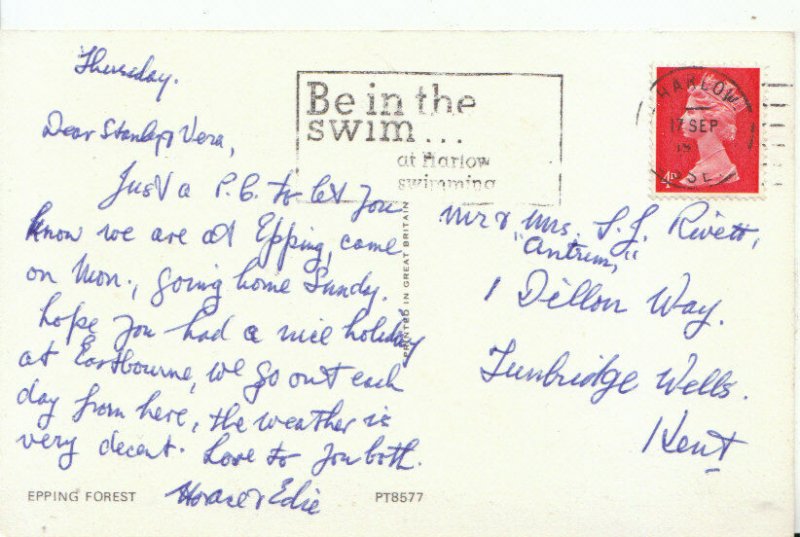 Thursday.
Dear Stanley & Vera,
Just a P.C. to let you
know we are at Epping, came
on Mon., going home Sunday.
hope you had a nice holiday
at Eastbourne, we go out each
day from here, the weather is
very decent. Love to you both.
Horace & Edie
EPPING FOREST
PT8577
PRINTED IN GREAT BRITAIN
Be in the
swim...
at Harlow
swimming
HARLOW
17 SEP
4D
Mr & Mrs. S. J. Rivett,
"Antrim,"
1 Dillon Way.
Tunbridge Wells.
Kent